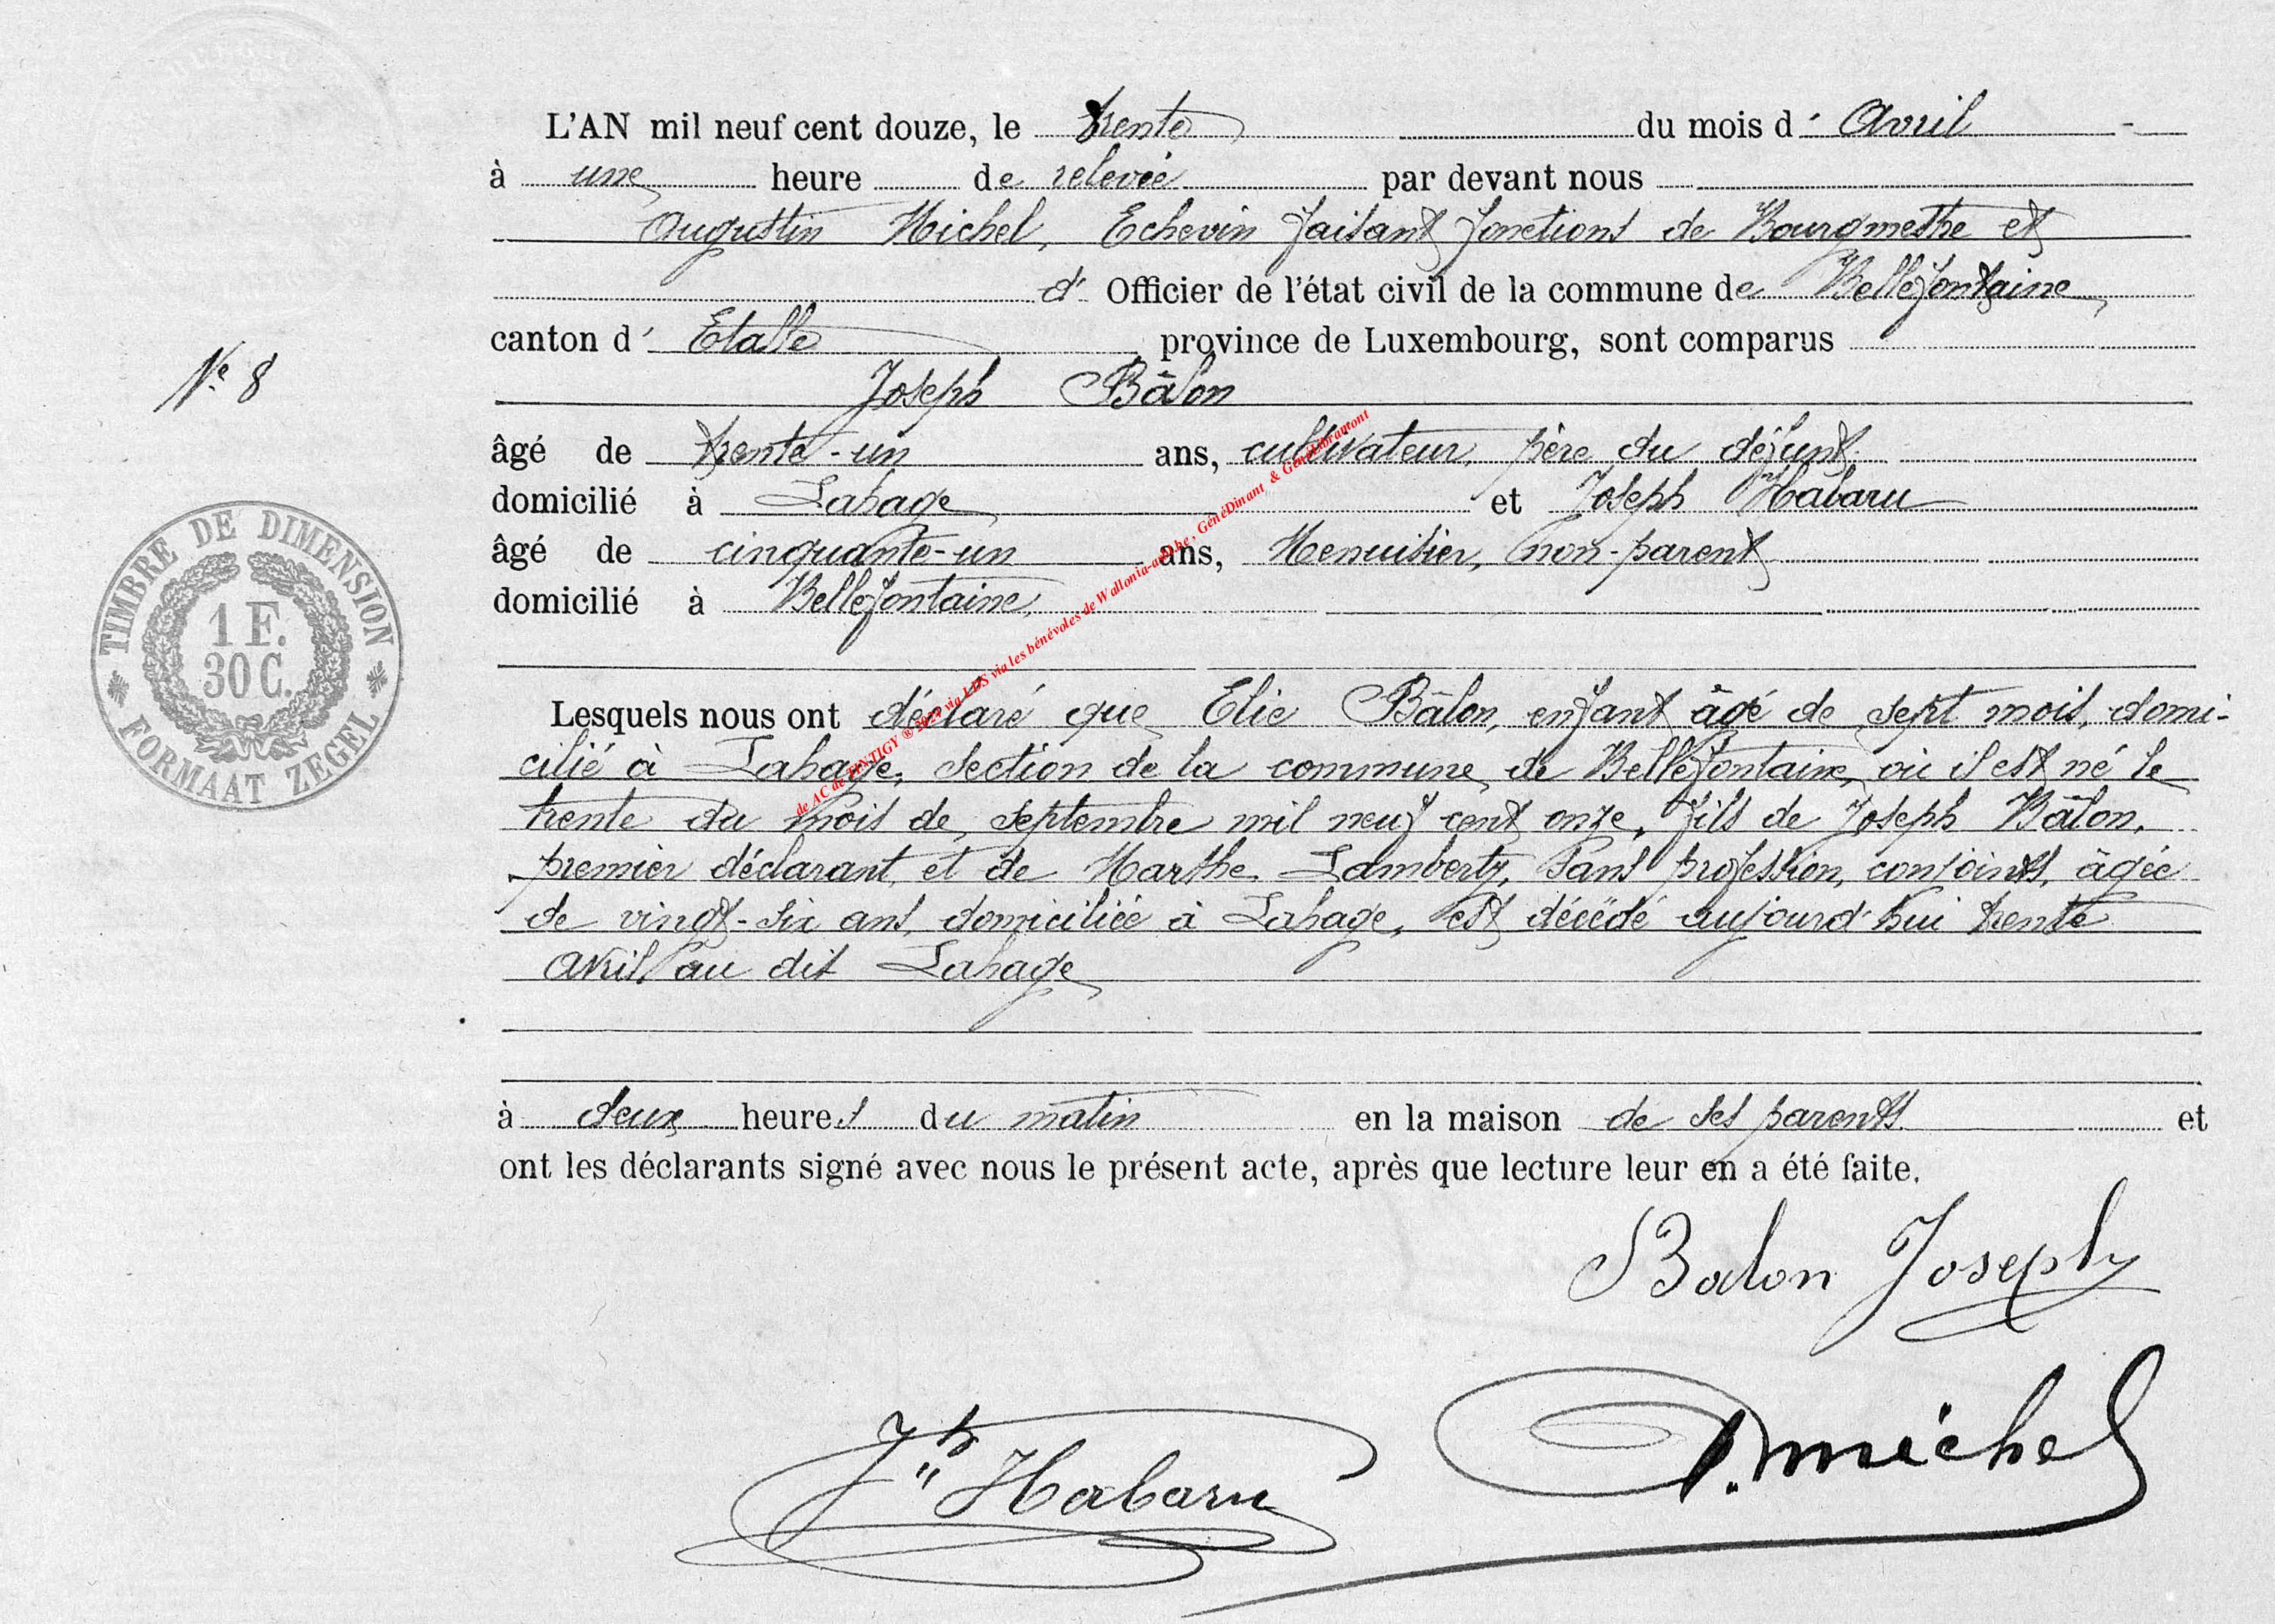 L'AN mil neuf cent douze, le trente du mois d' Avril
à une heure de relevée par devant nous
Augustin Michel, Echevin faisant fonctions de Bourgmestre et
d' Officier de l'état civil de la commune de Bellefontaine,
canton d' Etalle province de Luxembourg, sont comparus
Joseph Bâlon
âgé de trente-un ans, cultivateur, père du défunt,
domicilié à Lahage et Joseph Habaru
âgé de cinquante-un ans, Menuisier, non-parent
domicilié à Bellefontaine,
N° 8
TIMBRE DE DIMENSION
1 F.
30 C.
FORMAAT ZEGEL
de AC de TINTIGY ® 2022 via LDS via les bénévoles de Wallonia-asbl.be, GénéDinant & GénéLibramont
Lesquels nous ont déclaré que Elie Bâlon, enfant âgé de sept mois, domi-
cilié à Lahage, section de la commune de Bellefontaine, où il est né le
trente du mois de septembre mil neuf cent onze, fils de Joseph Bâlon,
premier déclarant et de Marthe Lamberty, sans profession, conjoints, âgée
de vingt-six ans, domiciliée à Lahage, est décédé aujourd'hui trente
avril au dit Lahage
à deux heures du matin en la maison de ses parents et
ont les déclarants signé avec nous le présent acte, après que lecture leur en a été faite.
Balon Joseph
Jph Habaru
A. Michel